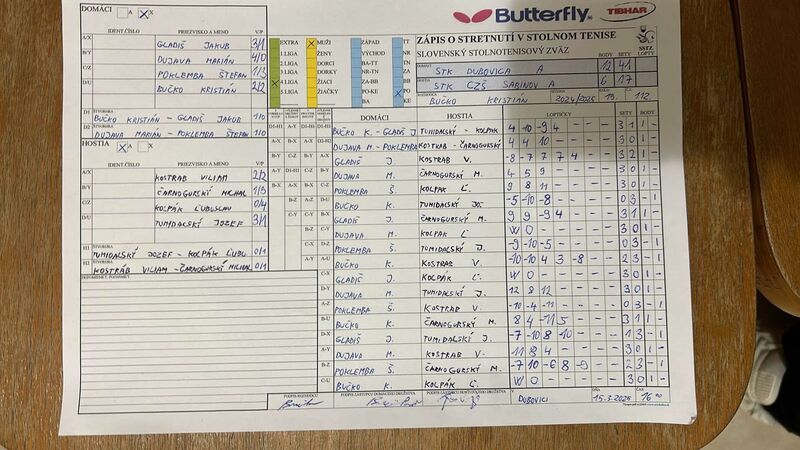 DOMÁCI A X
Butterfly TIBHAR
IDENT.ČÍSLO PRIEZVISKO A MENO V/P
ZÁPIS O STRETNUTÍ V STOLNOM TENISE
SLOVENSKÝ STOLNOTENISOVÝ ZVÄZ
SSTZ
BODY SETY LOPTY
A/X GLADIŠ JAKUB 3/1
B/Y DUJAVA MARIÁN 4/0
C/Z POKLEMBA ŠTEFAN 1/3
D/U BUČKO KRISTIÁN 2/2
EXTRA MUŽI ZÁPAD TT
1.LIGA ŽENY VÝCHOD NR
2.LIGA DORCI BA-TT
3.LIGA DORKY NR-TN ZA
4.LIGA ŽIACI ZA-BB
5.LIGA ŽIAČKY PO-KE PO
BA KE
STK DUBOVICA A 12 41
STK CZŠ SABINOV A 6 17
BUČKO KRISTIÁN 2024/2025 19. 112
D1 BUČKO KRISTIÁN - GLADIŠ JAKUB 1/0
D2 DUJAVA MARIÁN - POKLEMBA ŠTEFAN 1/0
HOSTIA A X
IDENT.ČÍSLO PRIEZVISKO A MENO V/P
A/X KOSTRAB VILIAM 2/2
B/Y ČARNOGURSKÝ MICHAL 1/3
C/Z KOLPÁK ĽUBOSLAV 0/4
D/U TUMIDALSKÝ JOZEF 3/1
H1 TUMIDALSKÝ JOZEF - KOLPÁK ĽUBO 0/1
H2 KOSTRÁB VILIAM - ČARNOGURSKÝ MICHAL 0/1
DOMÁCI HOSTIA LOPTIČKY SETY BODY
BUČKO K. - GLADIŠ J TUMIDALSK - KOLPAK 4 10 -9 4 - - - 3 1 1 -
DUJAVA M - POKLEMBA KOSTRAB - ČARNOGURSKÝ 4 4 10 - - - - 3 0 1 -
GLADIŠ J. KOSTRAB V. -8 -7 7 7 4 - - 3 2 1 -
DUJAVA M. ČARNOGURSKÝ M. 4 5 9 - - - - 3 0 1 -
POKLEMBA Š. KOLPAK Ľ. 9 8 11 - - - - 3 0 1 -
BUČKO K. TUMIDALSKÝ JO. -5 -10 -8 - - - - 0 3 - 1
GLADIŠ J. ČARNOGURSKÝ M. 9 9 -9 4 - - - 3 1 1 -
DUJAVA M. KOLPAK Ľ W O - - - - - 3 0 1 -
POKLEMBA Š. TUMIDALSKÝ J. -9 -10 -5 - - - - 0 3 - 1
BUČKO K. KOSTRAB V. -10 -10 4 3 -8 - - 2 3 - 1
GLADIŠ J. KOLPAK Ľ. W O - - - - - 3 0 1 -
DUJAVA M. TUMIDALSKÝ J. 12 8 12 - - - - 3 0 1 -
POKLEMBA Š KOSTRAB V. -10 -4 -11 - - - - 0 3 - 1
BUČKO K. ČARNOGURSKÝ M. 8 4 -11 5 - - - 3 1 1 -
GLADIŠ J. TUMIDALSKÝ J. -7 -10 8 -10 - - - 1 3 - 1
DUJAVA M. KOSTRAB V. 11 8 4 - - - - 3 0 1 -
POKLEMBA Š. ČARNOGURSKÝ M. -7 10 -6 8 -9 - - 2 3 - 1
BUČKO K. KOLPÁK Ľ. W O - - - - - 3 0 1 -
PODPIS ROZHODCU PODPIS ZÁSTUPCU DOMÁCEHO DRUŽSTVA PODPIS ZÁSTUPCU HOSŤUJÚCEHO DRUŽSTVA V DŇA ČAS
DUBOVICI 15.3.2025 16 00